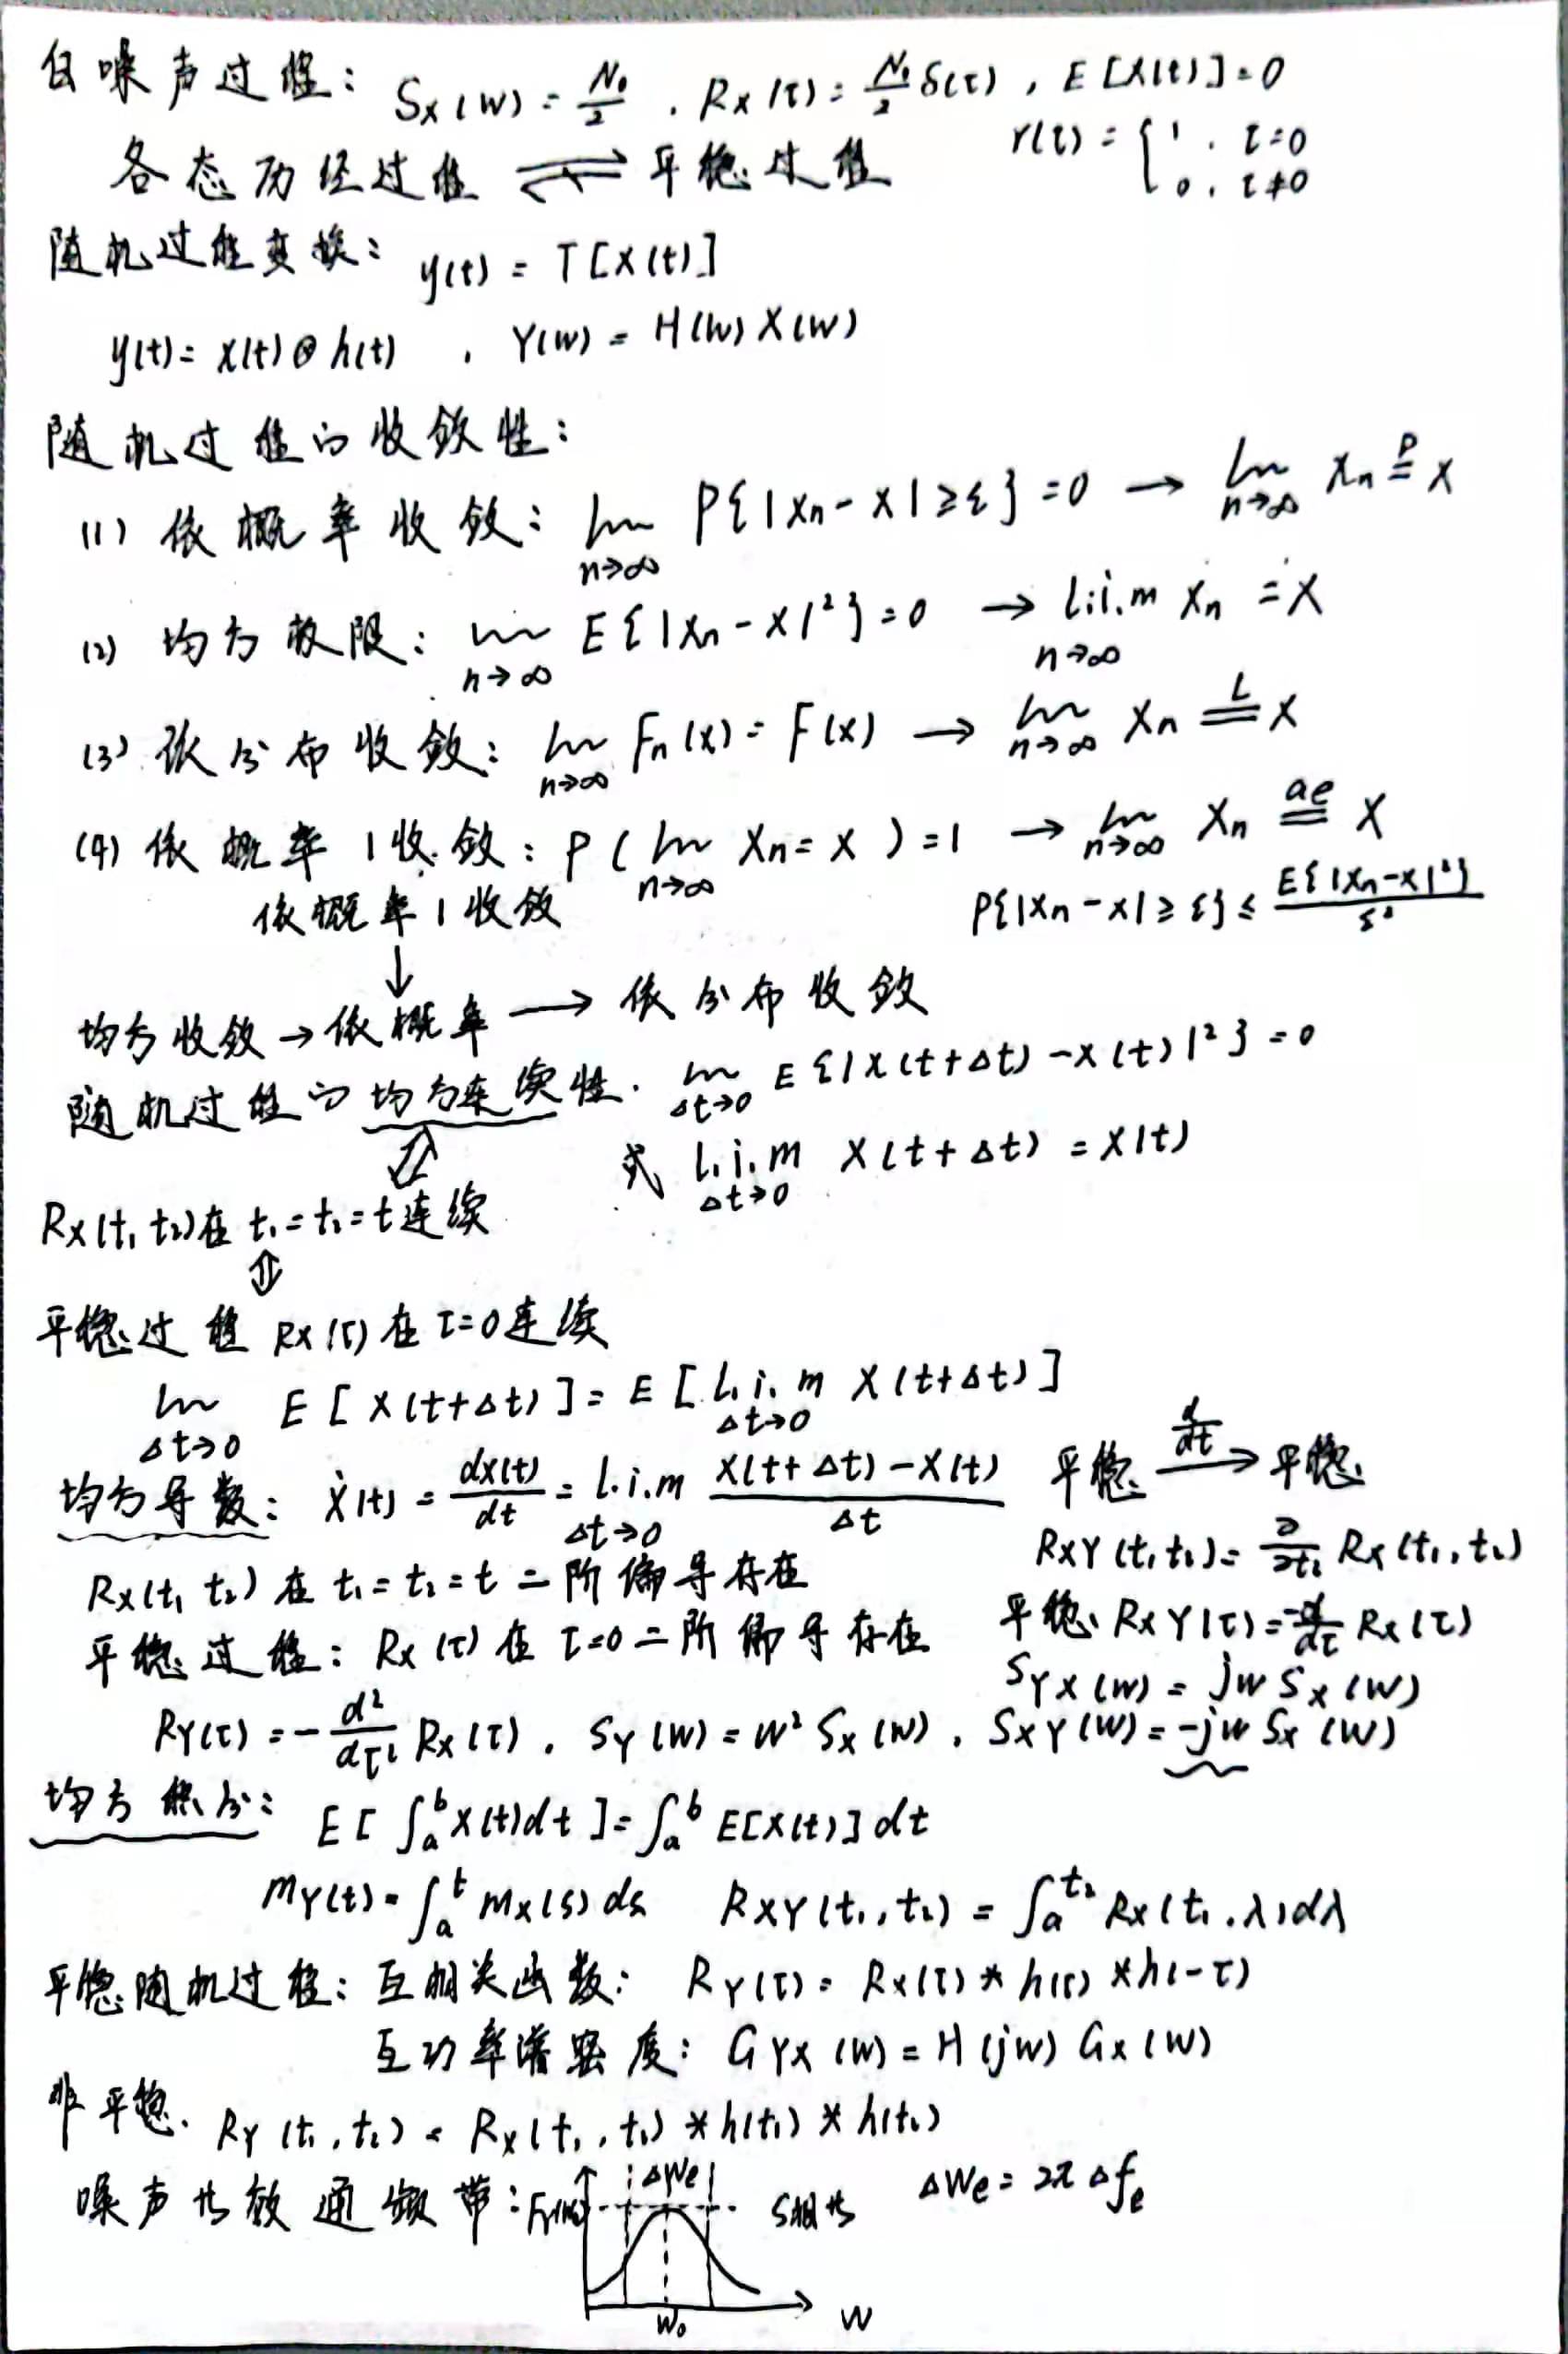 白噪声过程: Sx(w) = N₀/2 , Rx(τ) = N₀/2 δ(τ) , E[X(t)] = 0
各态历经过程 ⇌ 平稳过程 r(τ) = { 1 , τ=0
0 , τ≠0
随机过程变换: y(t) = T[X(t)]
y(t) = x(t) ⊗ h(t) , Y(w) = H(w) X(w)
随机过程的收敛性:
(1) 依概率收敛: lim n→∞ P{|Xn - X| ≥ ε} = 0 → lim n→∞ Xn =ᴾ X
(2) 均方极限: lim n→∞ E{|Xn - X|²} = 0 → l.i.m n→∞ Xn = X
(3) 依分布收敛: lim n→∞ Fn(x) = F(x) → lim n→∞ Xn =ᴸ X
(4) 依概率1收敛: P( lim n→∞ Xn = X ) = 1 → lim n→∞ Xn =ᵃᵉ X
依概率1收敛 P{|Xn - X| ≥ ε} ≤ E{|Xn - X|²}/ε²
↓
均方收敛 → 依概率 → 依分布收敛
随机过程的均方连续性. lim Δt→0 E{|X(t+Δt) - X(t)|²} = 0
⇕ 或 l.i.m Δt→0 X(t+Δt) = X(t)
Rx(t₁ t₂)在 t₁=t₂=t连续
⇕
平稳过程 Rx(τ) 在 τ=0连续
lim Δt→0 E[X(t+Δt)] = E[l.i.m Δt→0 X(t+Δt)]
均方导数: Ẋ(t) = dX(t)/dt = l.i.m Δt→0 (X(t+Δt) - X(t))/Δt 平稳 d/dt → 平稳
Rx(t₁ t₂) 在 t₁=t₂=t 二阶偏导存在 RXY(t₁,t₂) = ∂/∂t₂ Rx(t₁,t₂)
平稳过程: Rx(τ) 在 τ=0 二阶偏导存在 平稳 RXY(τ) = -d/dτ Rx(τ)
SYX(w) = jw Sx(w)
RY(τ) = -d²/dτ² Rx(τ) , SY(w) = w² Sx(w) , SXY(w) = -jw Sx(w)
均方积分: E[∫ₐᵇ X(t)dt] = ∫ₐᵇ E[X(t)] dt
mY(t) = ∫ₐᵗ mX(s) ds RXY(t₁,t₂) = ∫ₐ^t₂ Rx(t₁,λ)dλ
平稳随机过程: 互相关函数: RY(τ) = Rx(τ) * h(τ) * h(-τ)
互功率谱密度: GYX(w) = H(jw) Gx(w)
非平稳. RY(t₁,t₂) = Rx(t₁,t₂) * h(t₁) * h(t₂)
噪声等效通频带: ΔWe S相等 ΔWe = 2π Δfe
W₀ W